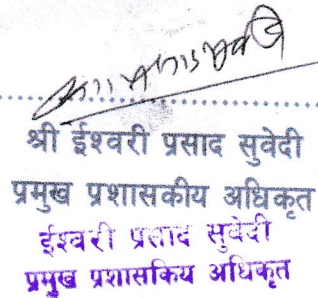 श्री ईश्वरी प्रसाद सुवेदी
प्रमुख प्रशासकीय अधिकृत
ईश्वरी प्रसाद सुवेदी
प्रमुख प्रशासकिय अधिकृत